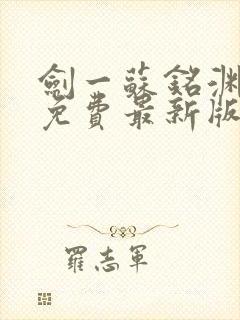 劍一蘇銘淵
免費最新版
羅志軍